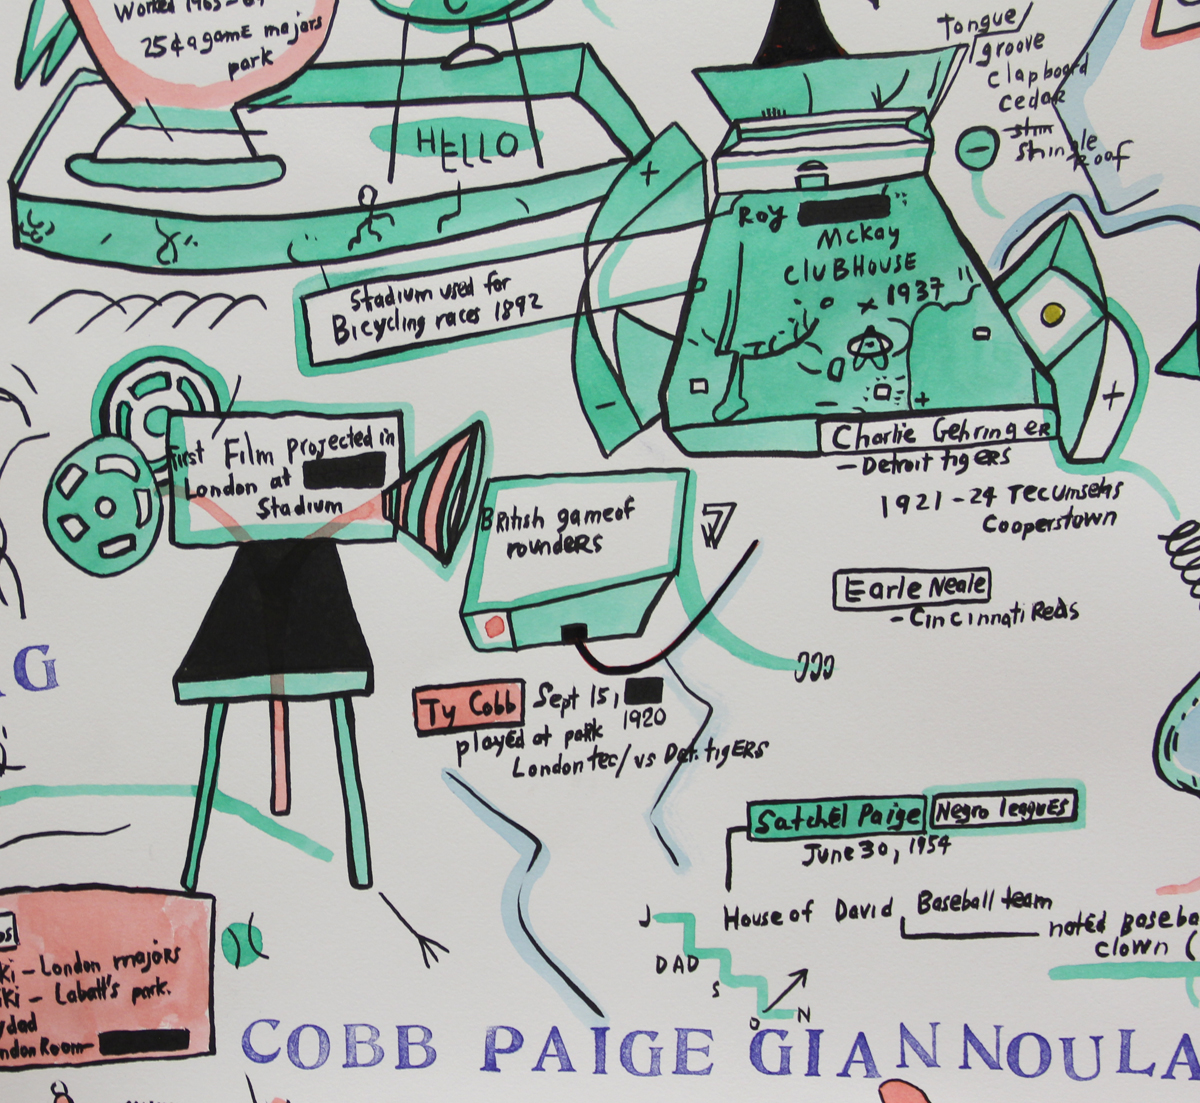 Worked 1965-
25¢ a game majors
park
HELLO
Tongue/
groove
clapboard
cedar
shingle
Roof
Roy
McKay
cluBHOUSE
1937
Stadium used for
Bicycling races 1892
First Film projected in
London at
Stadium
Charlie GehringER
- Detroit tigERS
1921-24 Tecumsehs
Cooperstown
BRitish game of
roundeRS
Earle Neale
- Cincinnati Reds
G
Ty Cobb Sept 15,
1920
played at park
London tec/vs Det. tigERS
Satchel Paige Negro leaguES
June 30, 1954
House of David Baseball team
noted Baseba
clown (
J
DAD
S
O N
ki - London majors
iki - Labatt's park.
dad
ndon Room
COBB PAIGE GIANNOULA